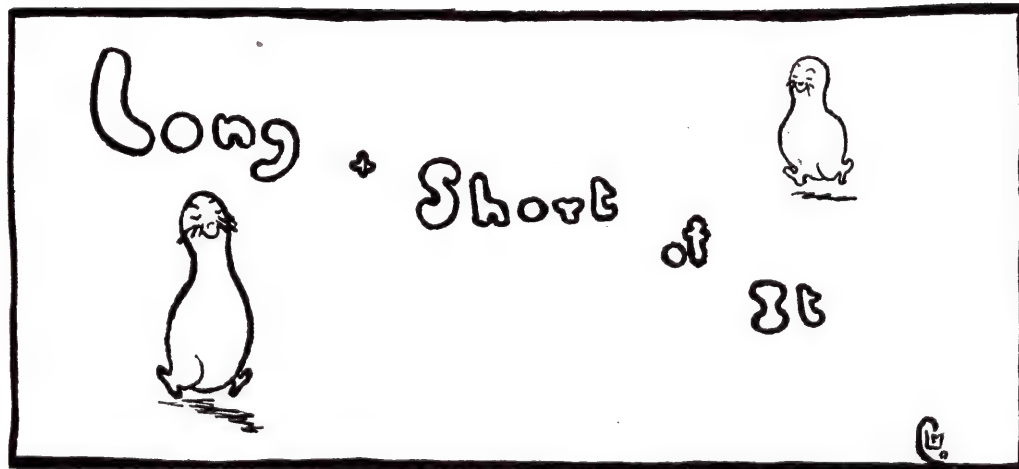 Long + Short of It